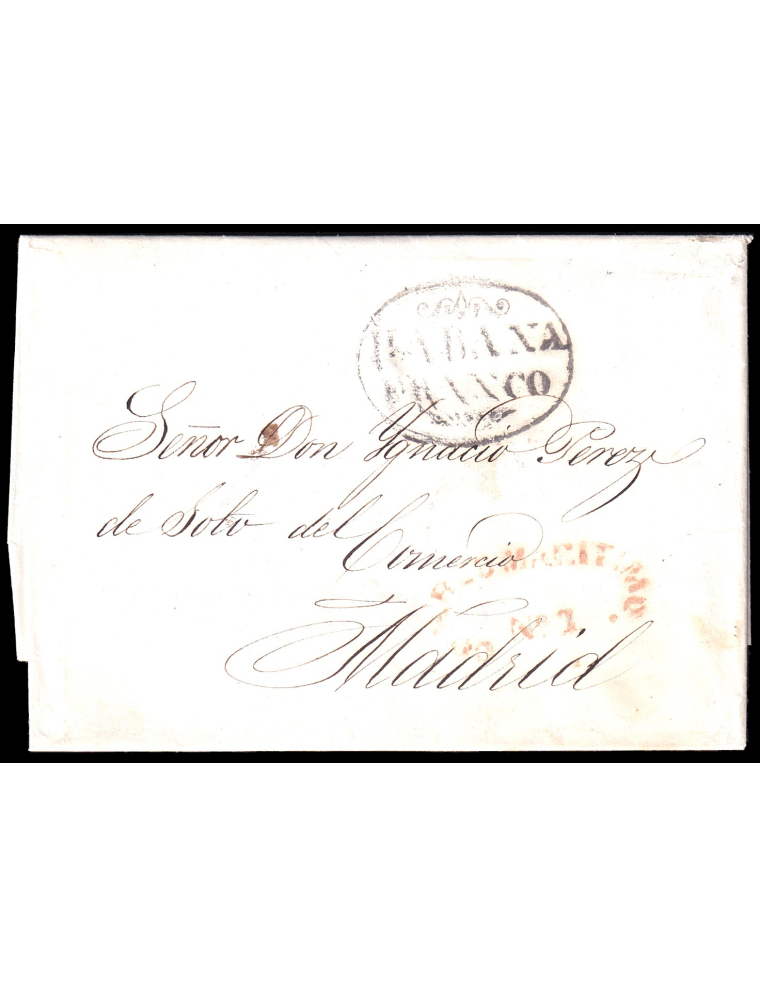 HABANA
FRANCO
Señor Don Ygnacio Perez
de Soto del Comercio
Madrid
MARITIMO
Nº 2